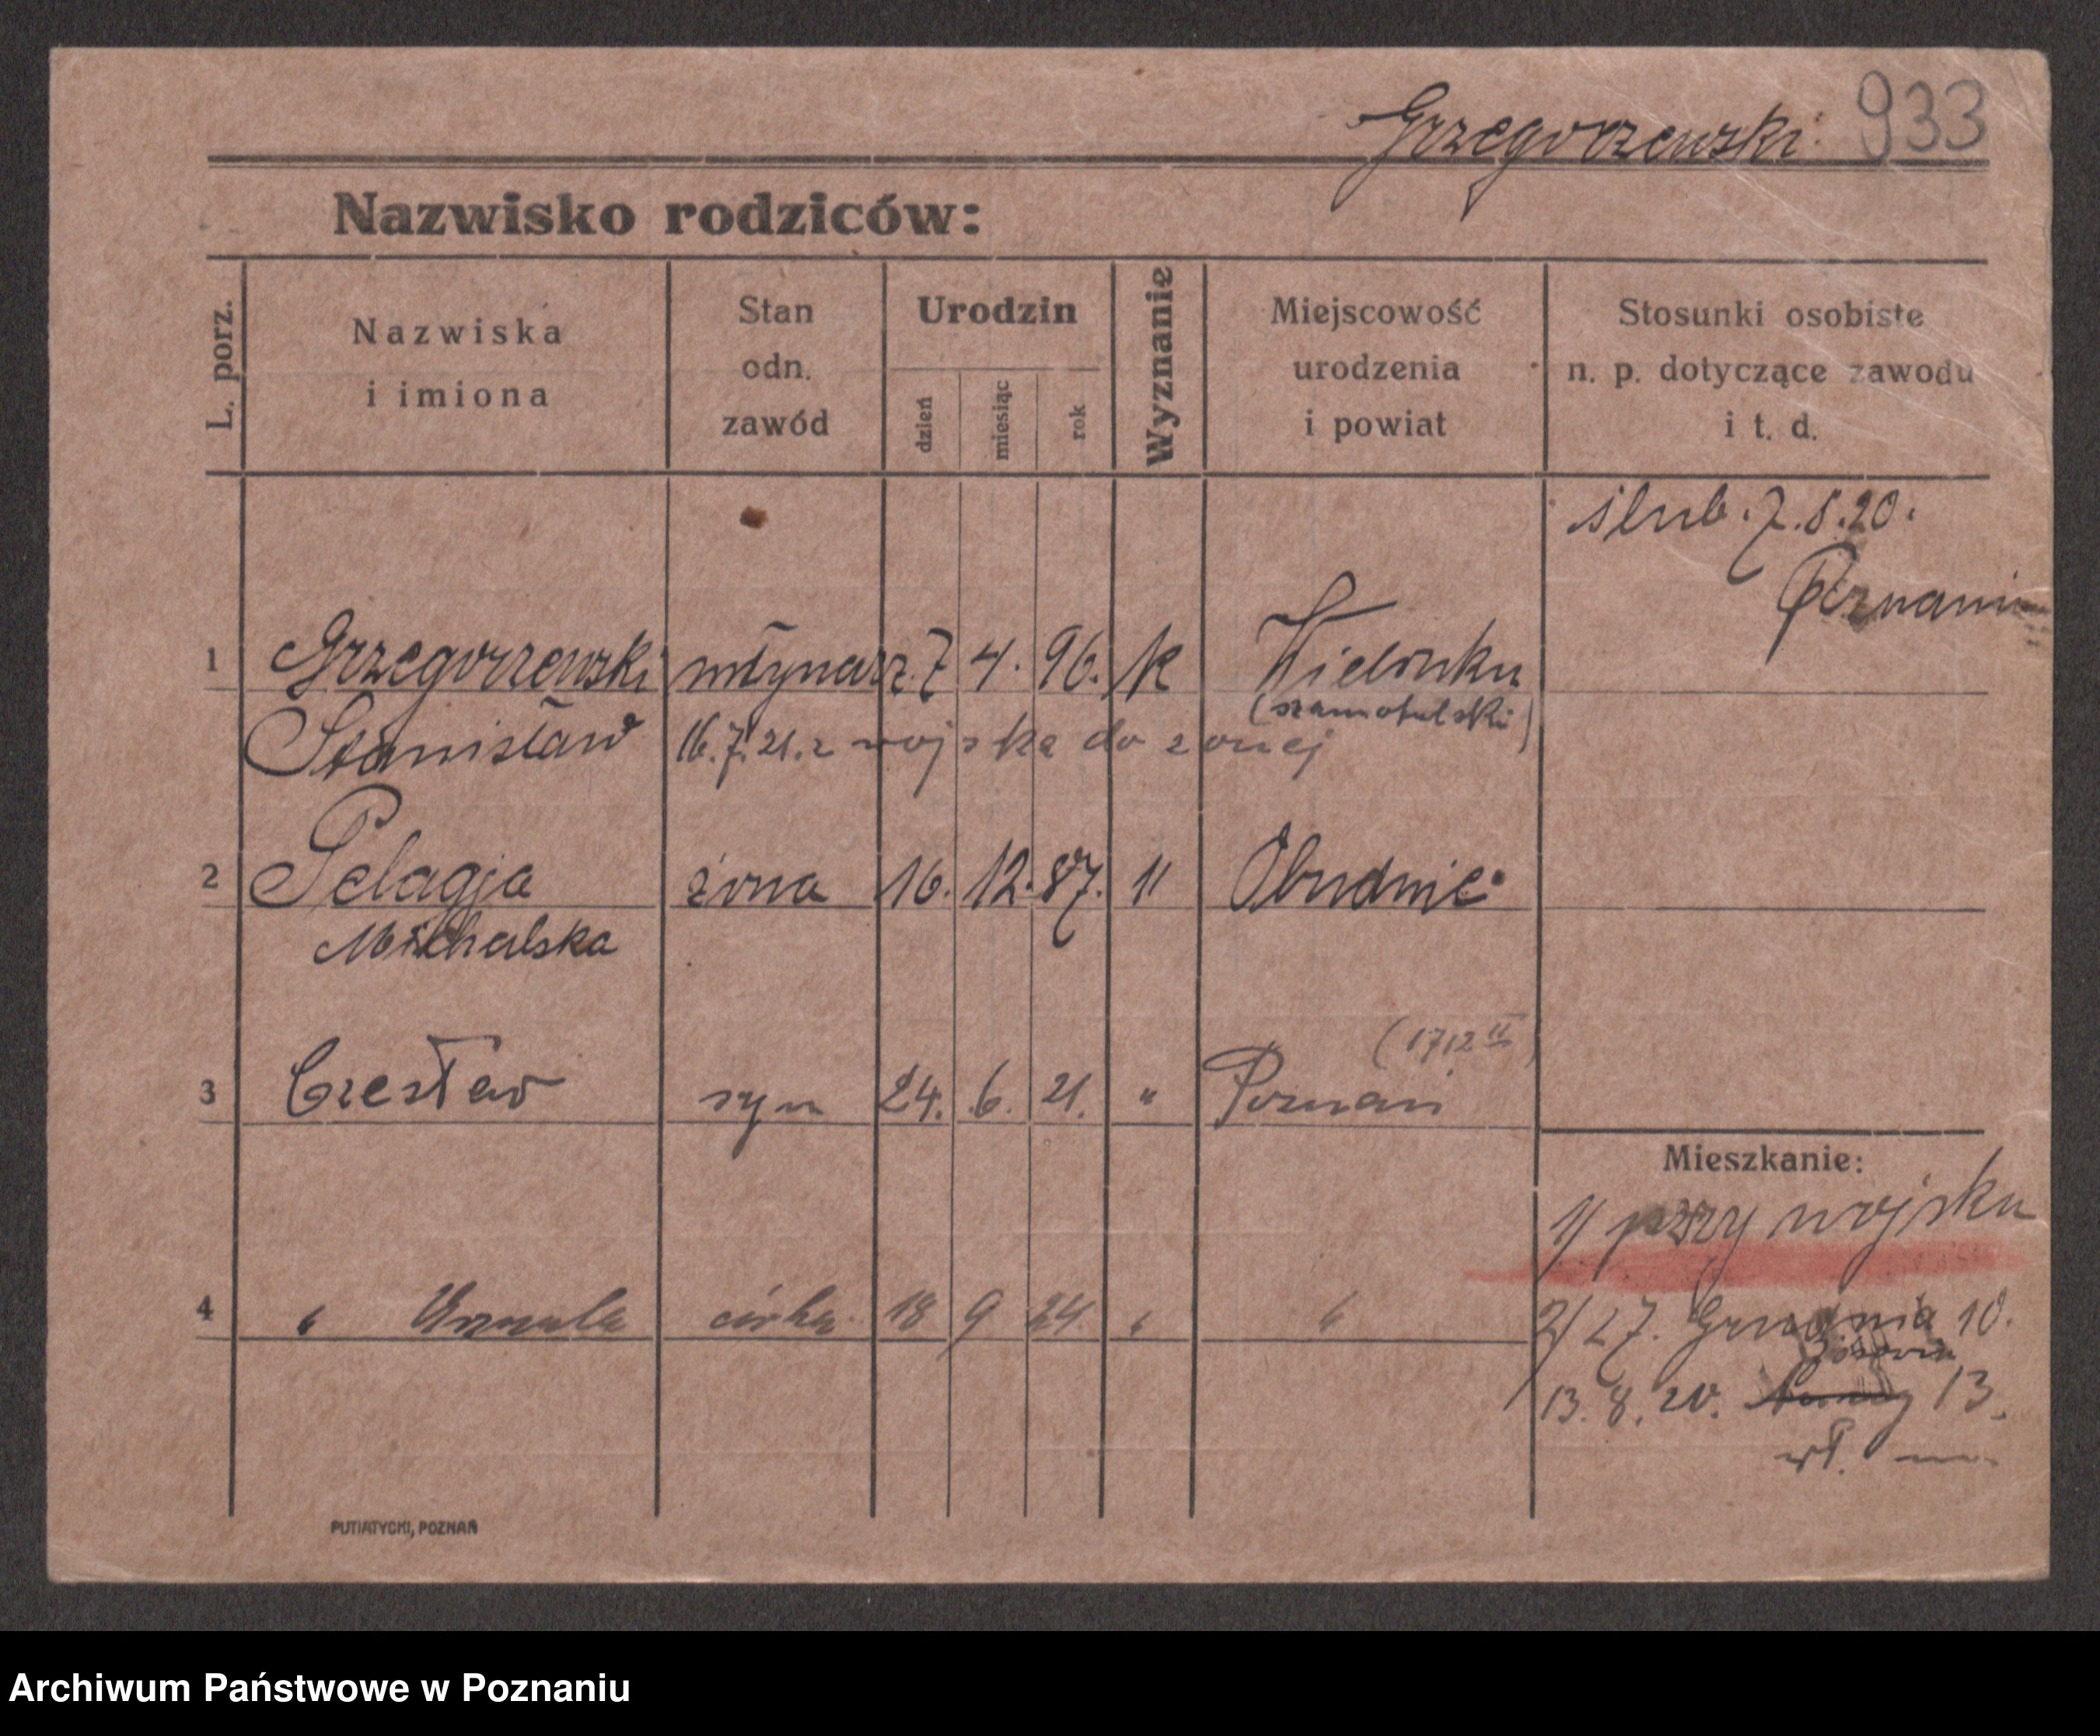 Grzegorzewski 933
Nazwisko rodziców:
L. porz.
Nazwiska
i imiona
Stan
odn.
zawód
Urodzin
dzień
miesiąc
rok
Wyznanie
Miejscowość
urodzenia
i powiat
Stosunki osobiste
n. p. dotyczące zawodu
i t. d.
ślub. 7.8.20.
1 Grzegorzewski młynarz. 7 4. 96. k
(szamotulski)
Stanisław 16.7.21. z wojska do żonej
2 Pelagja żona 16. 12. 87. "
Michalska
3 Czesław syn 24. 6. 21. " Poznań
Mieszkanie:
1/ przy wojsku
4 " Urszula córka 18 9 24 " "
2/ 27. Grudnia 10.
13. 8. 20. 13.
PUTIATYCKI, POZNAŃ
Archiwum Państwowe w Poznaniu